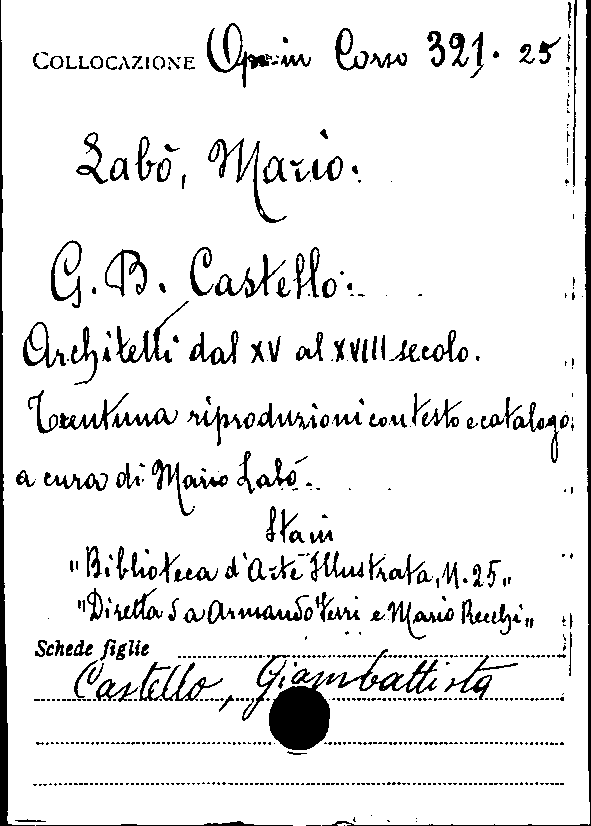 COLLOCAZIONE Op. in Corso 321. 25
Labò, Mario.
G. B. Castello.
Architetti dal XV al XVIII secolo.
Trentuna riproduzioni con testo e catalogo
a cura di Mario Labò.
Sta in
"Biblioteca d'Arte Illustrata, N. 25"
"Diretta da Armando Ferri e Mario Recchi"
Schede figlie
Castello, Giambattista